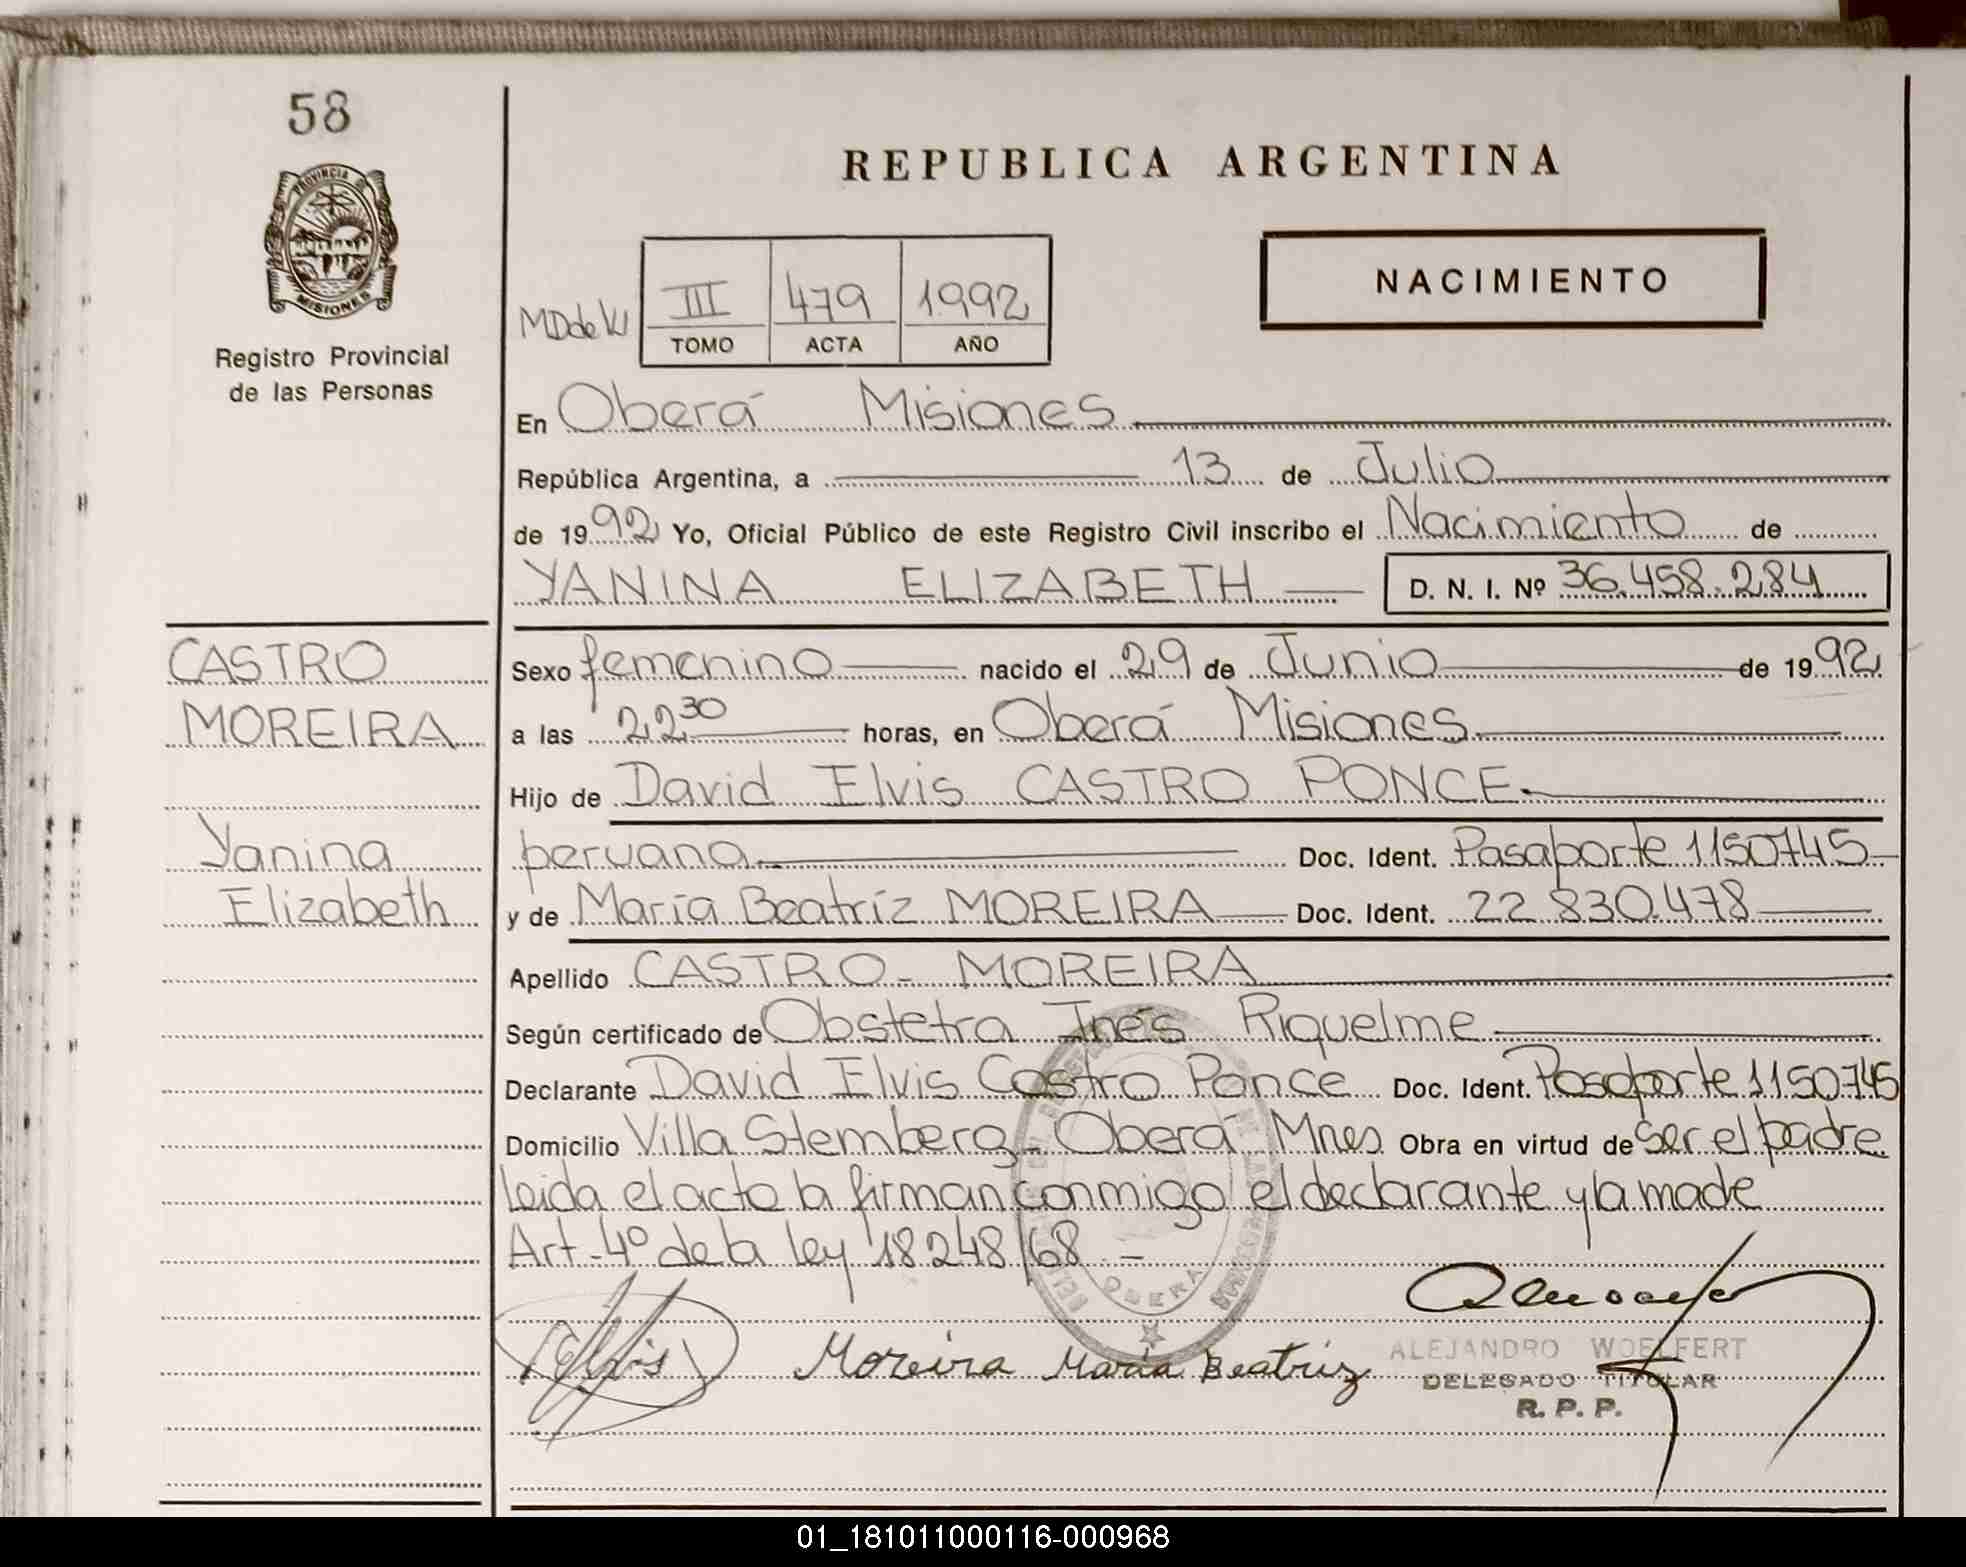 58
REPUBLICA ARGENTINA
PROVINCIA
MISIONES
NACIMIENTO
MDdeW III 479 1992
TOMO ACTA AÑO
Registro Provincial
de las Personas
En Oberá Misiones
República Argentina, a 13 de Julio
de 1992 Yo, Oficial Público de este Registro Civil inscribo el Nacimiento de
YANINA ELIZABETH D. N. I. Nº 36.458.284
CASTRO
MOREIRA
Yanina
Elizabeth
Sexo femenino nacido el 29 de Junio de 1992
a las 22 30 horas, en Oberá Misiones
Hijo de David Elvis CASTRO PONCE
peruana Doc. Ident. Pasaporte 1150745
y de María Beatríz MOREIRA Doc. Ident. 22 830.478
Apellido CASTRO - MOREIRA
Según certificado de Obstetra Inés Riquelme
Declarante David Elvis Castro Ponce Doc. Ident. Pasaporte 1150745
Domicilio Villa Stemberg - Oberá Mnes Obra en virtud de ser el padre
leida el acto la firman conmigo el declarante y la made
Art - 4º de la ley 18248/68. -
OBERA
Elvis Moreira María Beatriz
ALEJANDRO WOELFERT
DELEGADO TITULAR
R. P. P.
01_181011000116-000968